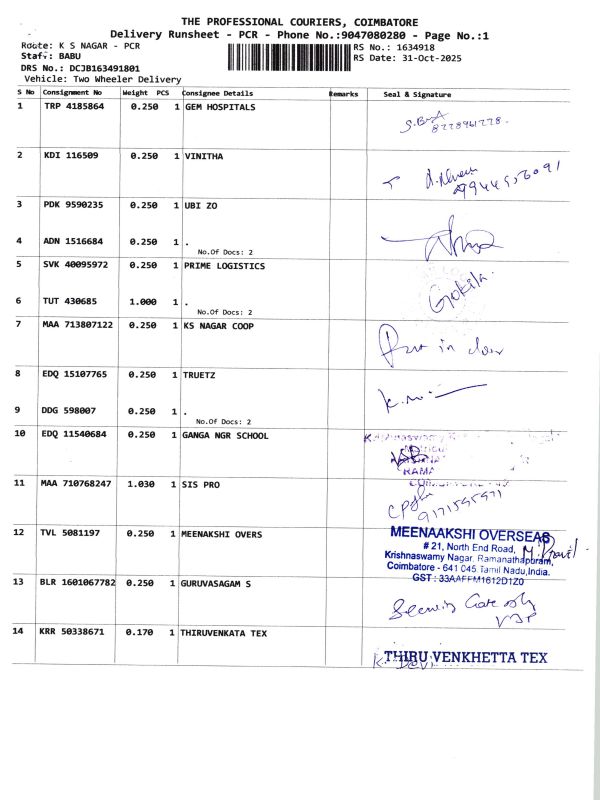 THE PROFESSIONAL COURIERS, COIMBATORE
Delivery Runsheet - PCR - Phone No.:9047080280 - Page No.:1
Route: K S NAGAR - PCR
RS No.: 1634918
Staff: BABU
RS Date: 31-Oct-2025
DRS No.: DCJB163491801
Vehicle: Two Wheeler Delivery
S No Consignment No Weight PCS Consignee Details Remarks Seal & Signature
1 TRP 4185864 0.250 1 GEM HOSPITALS
8778961778.
2 KDI 116509 0.250 1 VINITHA
9944556091
3 PDK 9590235 0.250 1 UBI ZO
4 ADN 1516684 0.250 1 .
No.Of Docs: 2
5 SVK 40095972 0.250 1 PRIME LOGISTICS
Gokila.
6 TUT 430685 1.000 1 .
No.Of Docs: 2
7 MAA 713807122 0.250 1 KS NAGAR COOP
Put in door
8 EDQ 15107765 0.250 1 TRUETZ
9 DDG 598007 0.250 1 .
No.Of Docs: 2
10 EDQ 11540684 0.250 1 GANGA NGR SCHOOL
RAMA
11 MAA 710768247 1.030 1 SIS PRO
12 TVL 5081197 0.250 1 MEENAKSHI OVERS
MEENAAKSHI OVERSEAS
# 21, North End Road,
Krishnaswamy Nagar, Ramanathapuram,
Coimbatore - 641 045. Tamil Nadu, India.
GST : 33AAFFM1612D1Z0
13 BLR 1601067782 0.250 1 GURUVASAGAM S
14 KRR 50338671 0.170 1 THIRUVENKATA TEX
THIRU VENKHETTA TEX